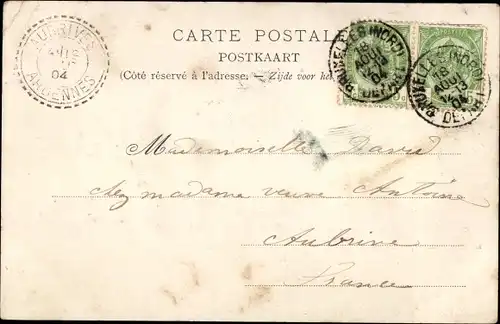 CARTE POSTALE
POSTKAART
(Côté réservé à l'adresse. — Zijde voor het
AUBRIVES
04
ARDENNES
BRUXELLES (NORD)
18
AOUT
04
DEPART
BRUXELLES (NORD)
18
AOUT
12-13
04
DEPART
Mademoiselle David
chez madame veuve Antoine
Aubrive
France